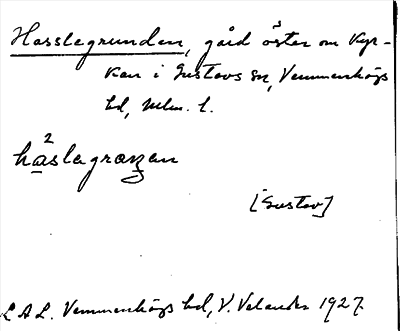 Hasslegrunden, gård öster om kyr-
kan i Gustavs sn, Vemmenhögs
hd, Mlm. l.
ha²slegrœnen
[Gustav]
L A L. Vemmenhögs hd, V. Velander 1927.